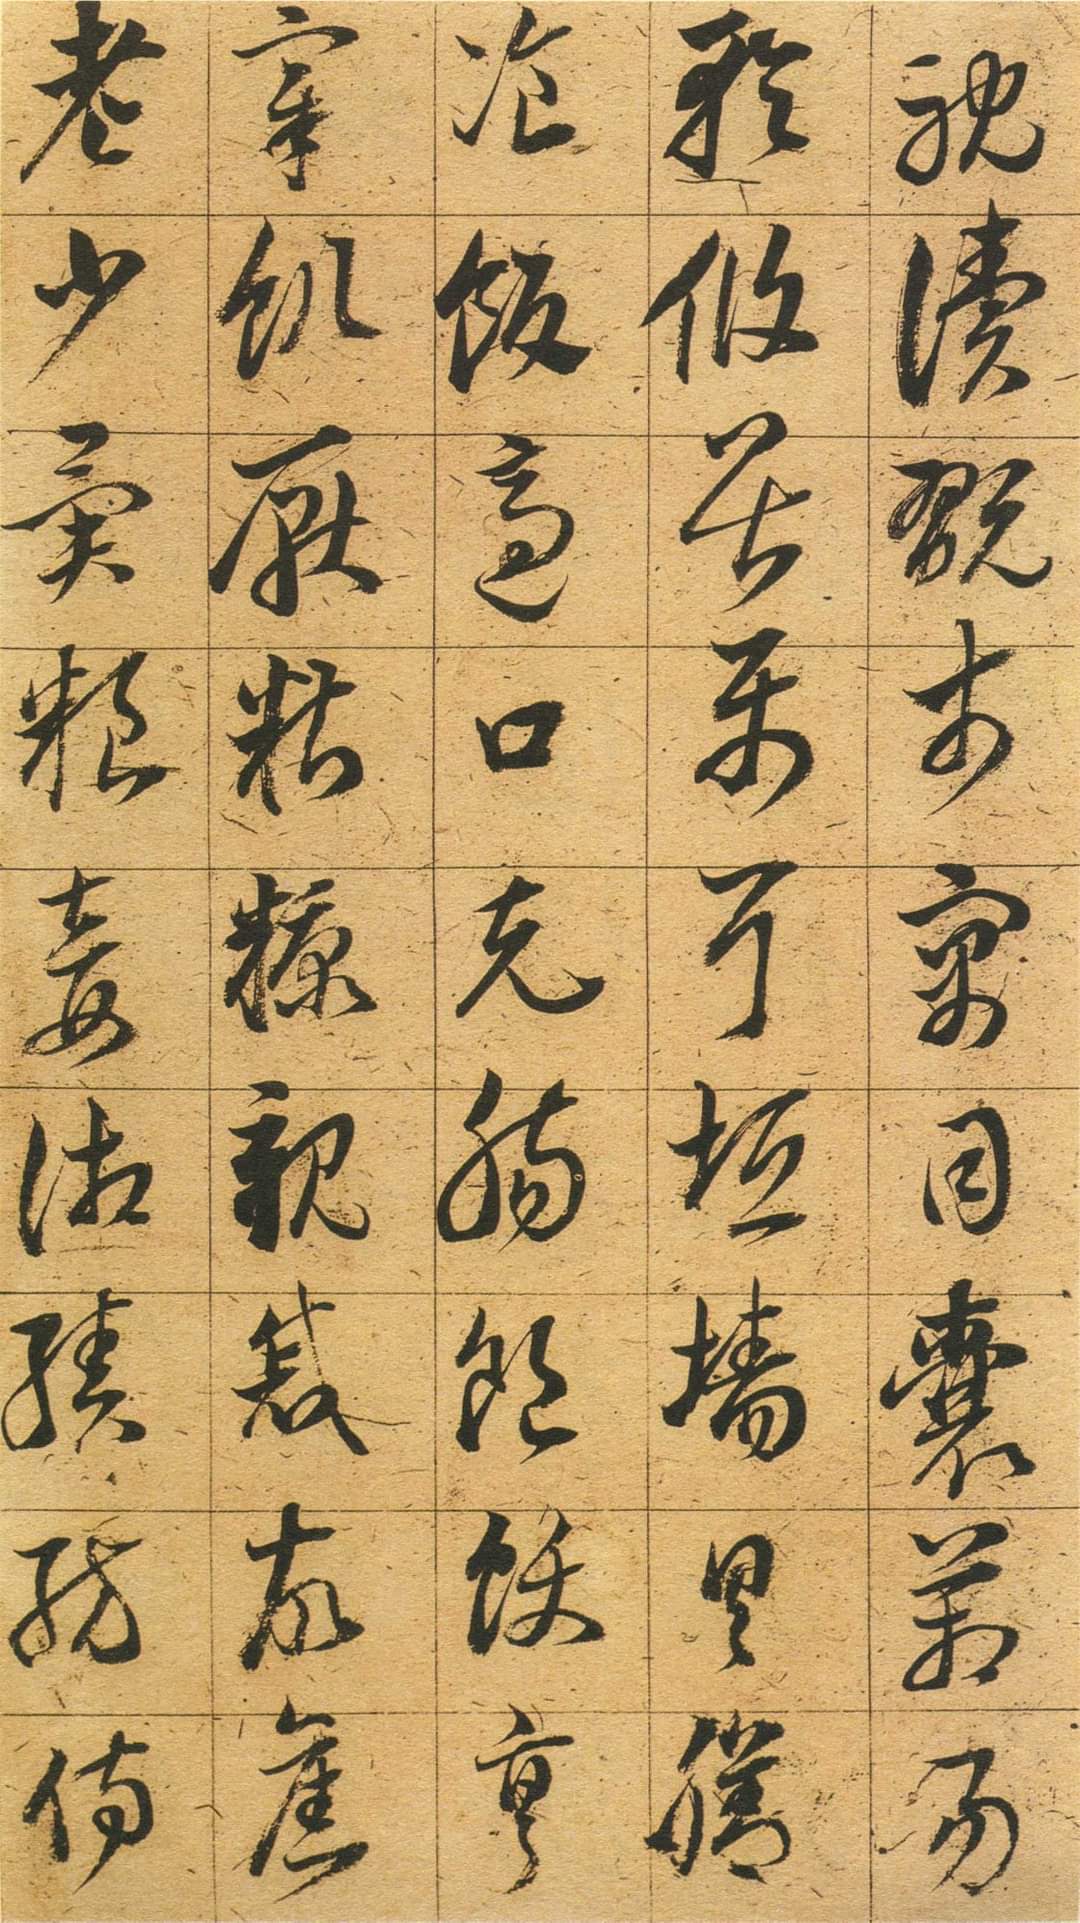 耽讀翫市寓目囊箱易
輶攸畏屬耳垣墻具膳
飡飯適口充腸飽飫亨
宰飢厭糟糠親戚故舊
老少異糧妾御績紡侍